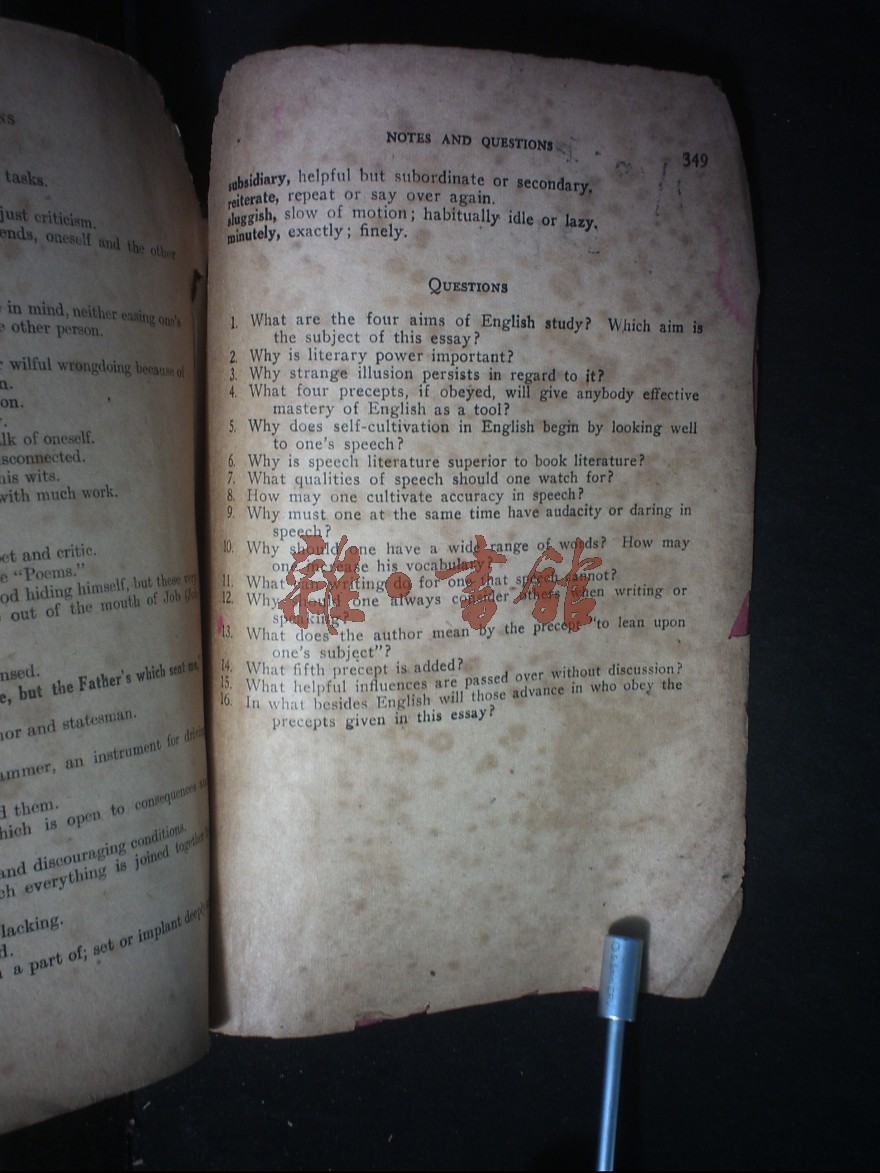 ss
tasks.
just criticism.
ends, oneself and the other
in mind, neither easing one's
other person.
wilful wrongdoing because of
n.
on.
lk of oneself.
sconnected.
his wits.
with much work.
et and critic.
e "Poems."
od hiding himself, but these very
out of the mouth of Job (Job
nsed.
e, but the Father's which sent me,"
nor and statesman.
ammer, an instrument for driving
d them.
hich is open to consequences
and discouraging conditions.
ch everything is joined together
lacking.
d.
a part of; set or implant deeply
NOTES AND QUESTIONS 349
subsidiary, helpful but subordinate or secondary.
reiterate, repeat or say over again.
sluggish, slow of motion; habitually idle or lazy.
minutely, exactly; finely.
QUESTIONS
1. What are the four aims of English study? Which aim is
the subject of this essay?
2. Why is literary power important?
3. Why strange illusion persists in regard to it?
4. What four precepts, if obeyed, will give anybody effective
mastery of English as a tool?
5. Why does self-cultivation in English begin by looking well
to one's speech?
6. Why is speech literature superior to book literature?
7. What qualities of speech should one watch for?
8. How may one cultivate accuracy in speech?
9. Why must one at the same time have audacity or daring in
speech?
10. Why should one have a wide range of words? How may
one increase his vocabulary?
11. What can writing do for one that speech cannot?
12. Why should one always consider others when writing or
speaking?
13. What does the author mean by the precept "to lean upon
one's subject"?
14. What fifth precept is added?
15. What helpful influences are passed over without discussion?
16. In what besides English will those advance in who obey the
precepts given in this essay?